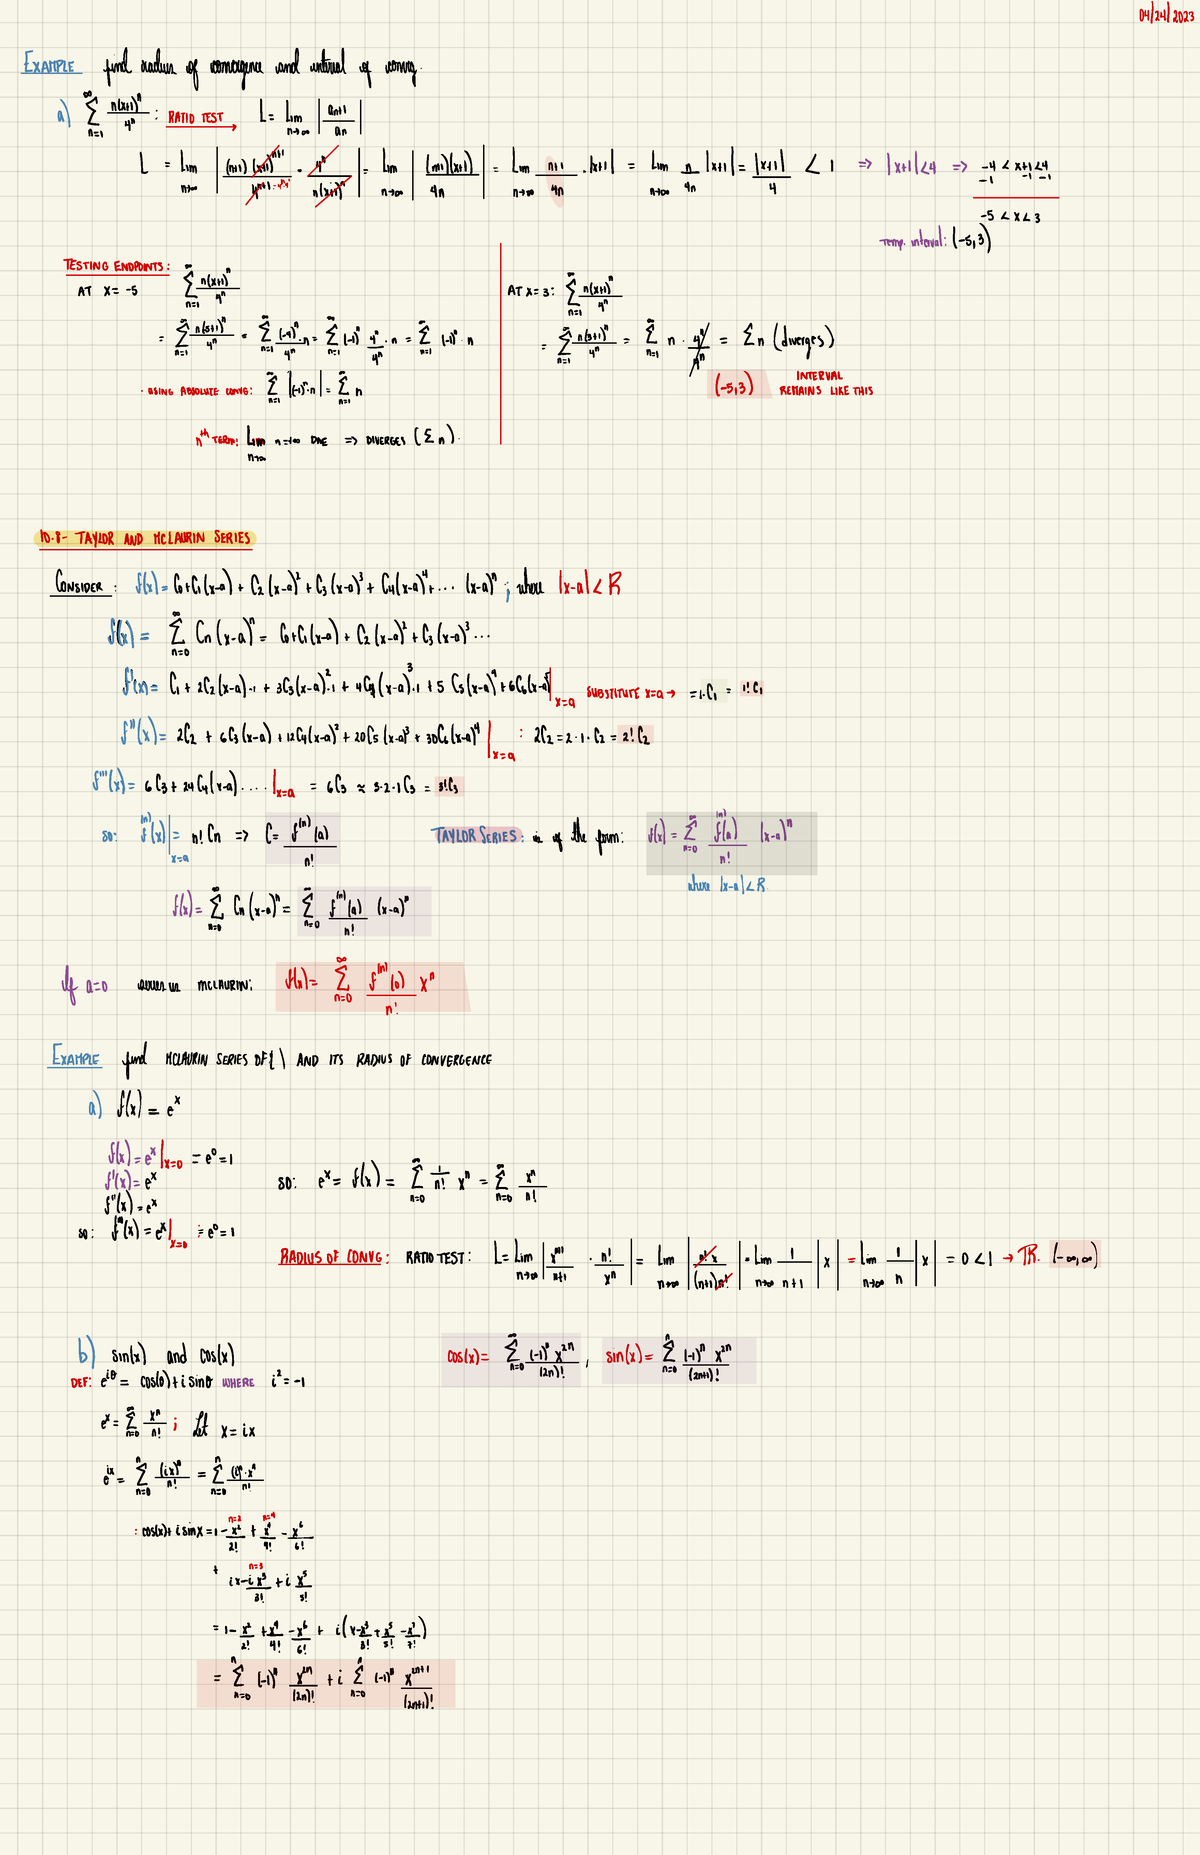 04/24/2023
EXAMPLE find radius of convergence and interval of convg.
a) ∞ Σ n=1 n(x+1)^n / 4^n : RATIO TEST → L = Lim n→∞ | a_{n+1} / a_n |
L = Lim n→∞ | (n+1)(x+1)^{n+1} / 4^{n+1} · 4^n / n(x+1)^n | = Lim n→∞ | (n+1)(x+1) / 4n | = Lim n→∞ n+1 / 4n · |x+1| = Lim n→∞ n / 4n |x+1| = |x+1| / 4 < 1 ⇒ |x+1| < 4 ⇒ -4 < x+1 < 4
-1 -1 -1
-5 < x < 3
Temp. interval: (-5,3)
TESTING ENDPOINTS:
AT X = -5 ∞ Σ n=1 n(x+1)^n / 4^n
= ∞ Σ n=1 n(5+1)^n / 4^n = ∞ Σ n=1 (-4)^n / 4^n · n = ∞ Σ n=1 (-1)^n 4^n / 4^n · n = ∞ Σ n=1 (-1)^n · n
· USING ABSOLUTE CONVG: ∞ Σ n=1 |(-1)^n · n| = ∞ Σ n=1 n
n^th TERM: Lim n→∞ n = ∞ DNE ⇒ DIVERGES (Σ n).
AT X = 3: ∞ Σ n=1 n(x+1)^n / 4^n
= ∞ Σ n=1 n(3+1)^n / 4^n = ∞ Σ n=1 n · 4^n / 4^n = Σ n (diverges)
(-5,3) INTERVAL REMAINS LIKE THIS
10.8- TAYLOR AND MCLAURIN SERIES
CONSIDER: f(x) = C0+C1(x-a) + C2(x-a)^2 + C3(x-a)^3 + C4(x-a)^4 + ... (x-a)^n ; where |x-a| < R
f(x) = ∞ Σ n=0 Cn(x-a)^n = C0+C1(x-a) + C2(x-a)^2 + C3(x-a)^3 ...
f'(x) = C1 + 2C2(x-a)·1 + 3C3(x-a)^2·1 + 4C4(x-a)^3·1 + 5 C5(x-a)^4 + 6C6(x-a)^5 | x=a SUBSTITUTE x=a → = 1·C1 = 1! C1
f''(x) = 2C2 + 6C3(x-a) + 12C4(x-a)^2 + 20C5(x-a)^3 + 30C6(x-a)^4 | x=a : 2C2 = 2·1·C2 = 2! C2
f'''(x) = 6C3 + 24C4(x-a).... | x=a = 6C3 ≈ 3·2·1C3 = 3!C3
so: f^(n)(x) | x=a = n! Cn ⇒ C = f^(n)(a) / n!
TAYLOR SERIES: is of the form: f(x) = ∞ Σ n=0 f^(n)(a) / n! (x-a)^n
where |x-a| < R
f(x) = ∞ Σ n=0 Cn(x-a)^n = ∞ Σ n=0 f^(n)(a) / n! (x-a)^n
if a=0 MCLAURIN: f(x) = ∞ Σ n=0 f^(n)(0) / n! x^n
EXAMPLE find MCLAURIN SERIES OF f( ) AND ITS RADIUS OF CONVERGENCE
a) f(x) = e^x
f(x) = e^x | x=0 = e^0 = 1
f'(x) = e^x
f''(x) = e^x
so: f^(n)(x) = e^x | x=0 = e^0 = 1
so: e^x = f(x) = ∞ Σ n=0 1 / n! x^n = ∞ Σ n=0 x^n / n!
RADIUS OF CONVG: RATIO TEST: L = Lim n→∞ | x^{n+1} / x+1 · n! / x^n | = Lim n→∞ | n! x / (n+1)n! | = Lim n→∞ 1 / n+1 | x | = Lim n→∞ 1 / n | x | = 0 < 1 → ℝ. (-∞,∞)
b) sin(x) and cos(x)
cos(x) = ∞ Σ n=0 (-1)^n x^{2n} / (2n)! , sin(x) = n Σ n=0 (-1)^n x^{2n} / (2n+1)!
DEF: e^{iθ} = cos(θ) + i sinθ WHERE i^2 = -1
e^x = ∞ Σ n=0 x^n / n! ; Let x = ix
e^{ix} = n Σ n=0 (ix)^n / n! = n Σ n=0 (i)^n · x^n / n!
: cos(x) + i sin x = 1 - x^2 / 2! + x^4 / 4! - x^6 / 6!
n=2 n=4
+ ix - i x^3 / 3! + i x^5 / 5!
n=3
= 1 - x^2 / 2! + x^4 / 4! - x^6 / 6! + i(x - x^3 / 3! + x^5 / 5! - x^7 / 7!)
= n Σ n=0 (-1)^n x^{2n} / (2n)! + i n Σ n=0 (-1)^n x^{2n+1} / (2n+1)!